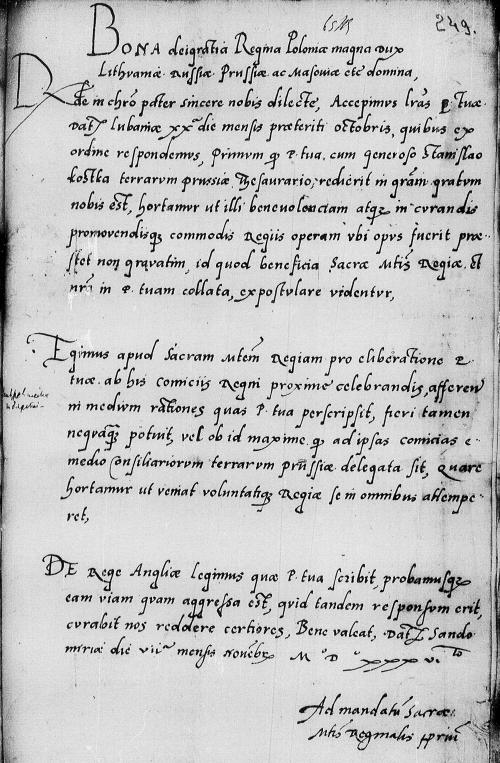 249.
BONA dei gratia Regina Poloniæ magna Dux
Lithvaniæ Russiæ Prussiæ ac Masoviæ etc domina,
Rde in chro pater sincere nobis dilecte, Accepimus lras P. tuæ
dat lubaviæ XXa die mensis præteriti octobris, quibus ex
ordine respondemus, Primum q P. tua cum generoso Stanislao
kostka terrarum prussiæ Thesaurario, redierit in gram gratum
nobis est, hortamur ut illi benevolenciam atq; in curandis
promovendisq; commodis Regiis operam ubi opus fuerit præ
stet non gravatim, id quod beneficia Sacræ Mtis Regiæ, et
nra in P. tuam collata, expostulare videntur,
Egimus apud Sacram Mtem Regiam pro eliberatione P.
tuæ ab his comiciis Regni proxime celebrandis, afferen
in medium rationes quas P. tua perscripsit, fieri tamen
nequaq; potuit, vel ob id maxime q ad ipsas comicias e
medio Consiliariorum terrarum prussiæ delegata sit, Quare
hortamur ut veniat voluntatiq; Regiæ se in omnibus attempe
ret,
DE Rege Angliæ legimus quæ P. tua scribit, probamusq;
eam viam quam aggressa est, quid tandem responsum erit,
curabit nos reddere certiores, Bene valeat, Dat Sando
miriæ die viia mensis Novebr M D XXX Vto
Ad mandatu Sacræ
Mtis Reginalis ppriu